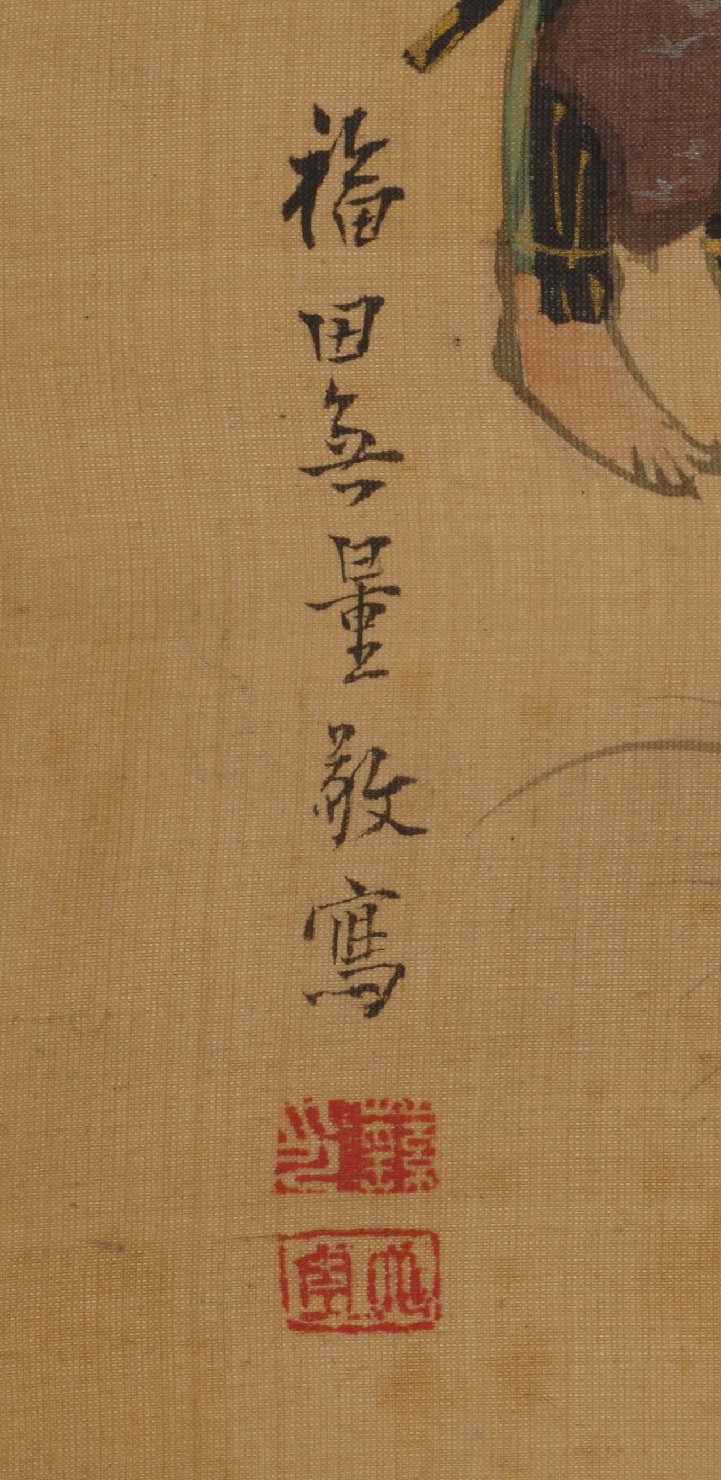 福田無量敬寫